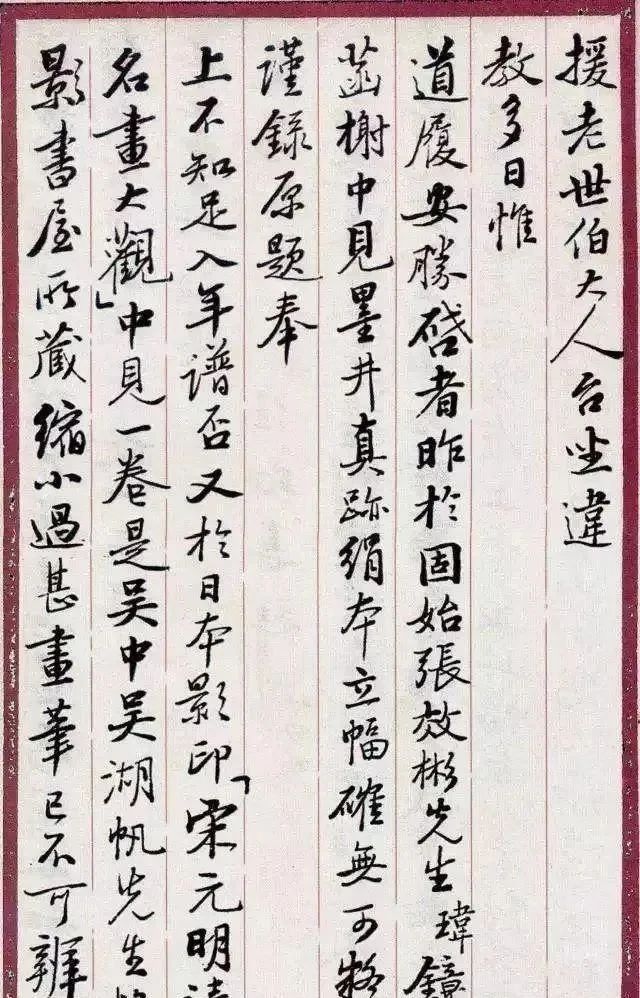 援老世伯大人台坐違
教多日惟
道履安勝啓者昨於固始張效彬先生瑋鏡
菡榭中見墨井真跡絹本立幅確無可
謹錄原題奉
上不知足入年譜否又於日本影印「宋元明清
名畫大觀」中見一卷是吳中吳湖帆先生
影書屋所藏縮小過甚畫筆已不可辨